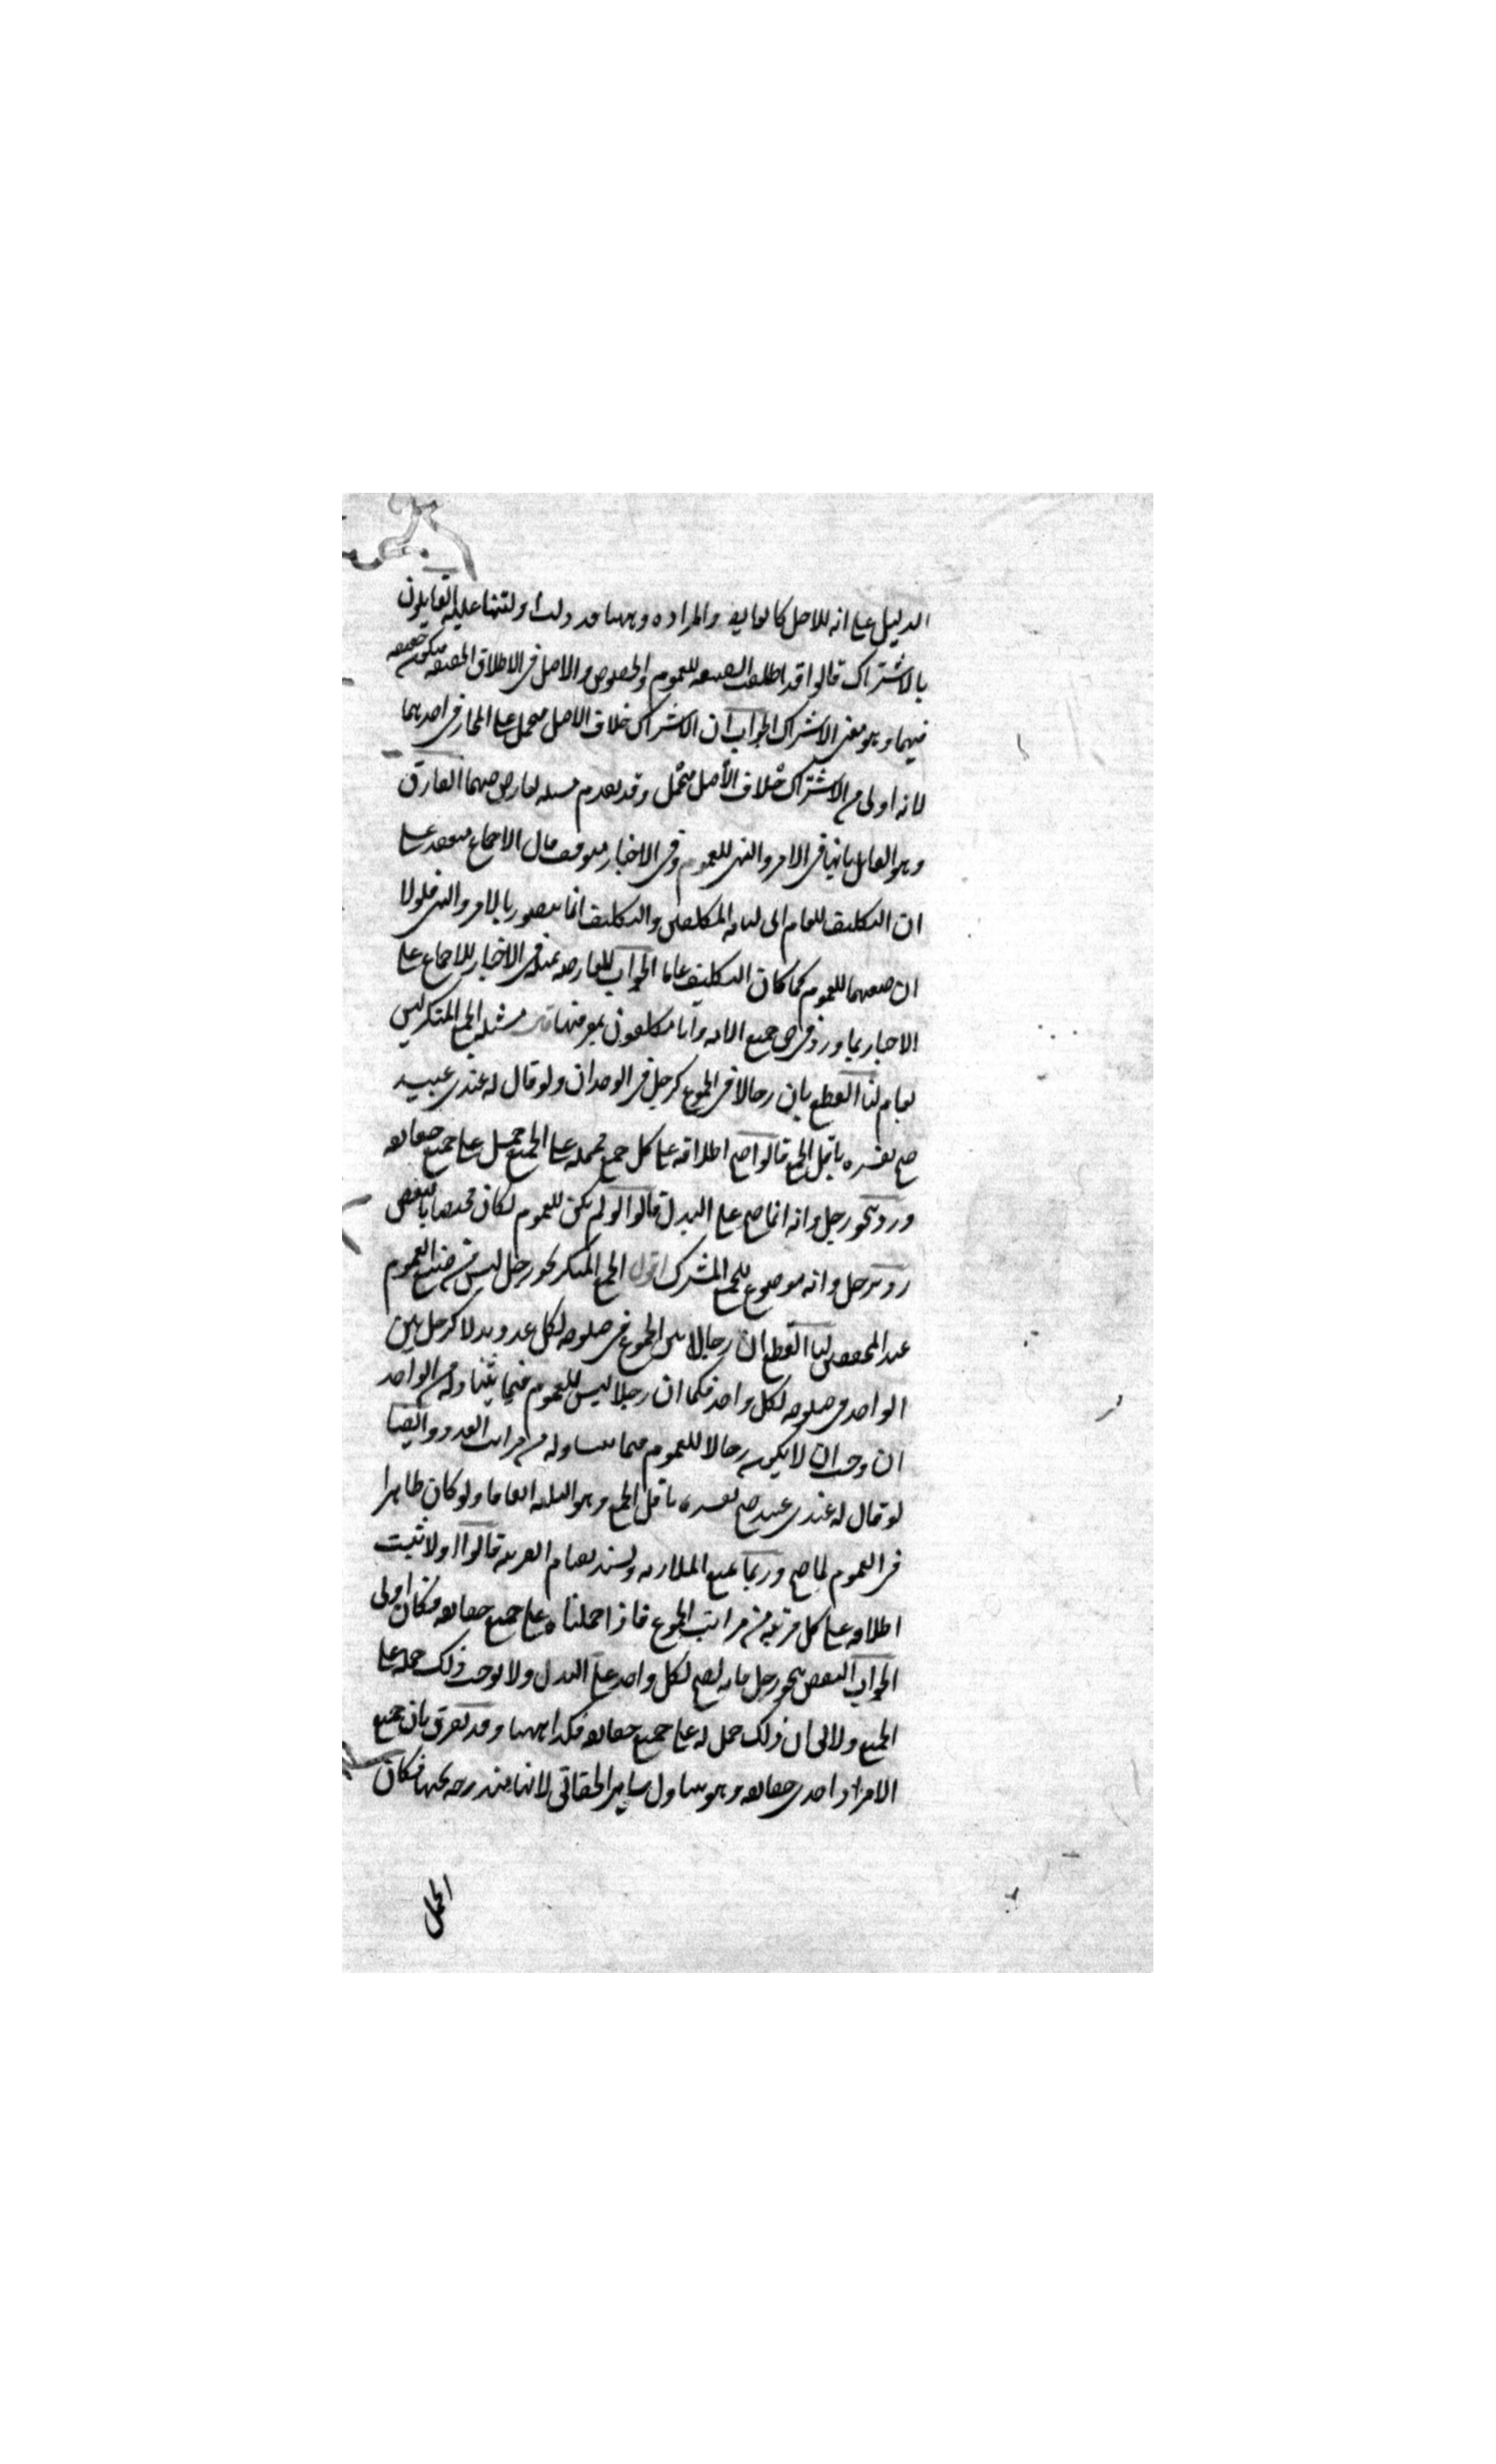 الدليل على انه للاصل كالعايد والمراده وههنا قد دلت ادلتنا عليه القايلون
بالاشتراك قالوا قد اطلقت الصيغة للعموم والخصوص والاصل في الاطلاق الحقيقة فيكون حقيقة
فيهما وهو معنى الاشتراك الجواب ان الاشتراك خلاف الاصل فيحمل على المجاز في احدهما
لانه اولى من الاشتراك خلاف الأصل فيحمل وقد تقدم مثله تعارض فيهما الفارق
وهو القائل بانها في الامر والنهي للعموم وفي الاخبار متوقف قال الاجماع منعقد على
ان التكليف للعام اى لعامة المكلفين والتكليف انما يتصور بالامر والنهي فلولا
ان صيغهما للعموم كما كان التكليف عاما الجواب المعارضة بمثله في الاخبار للاجماع على
الاخبار بما ورد في حق جميع الامة وانا مكلفون بمعرفتها قال مسئلة الجمع المنكر ليس
بعام لنا القطع بان رجالا في الجموع كرجل في الوحدان ولو قال له عندى عبيد
صح تفسيره باقل الجمع قالوا صح اطلاقه على كل جمع فحمله على الجميع حمل على جميع حقايقه
ورد بنحو رجل وانه انما صح على البدل قالوا لو لم يكن للعموم لكان مختصا بالبعض
رد برجل وانه موضوع للجمع المشترك اقول الجمع المنكر نحو رجل ليس من صيغ العموم
عند المحققين لنا القطع ان رجالا بين الجموع في صلوحه لكل عدد بدلا كرجل بين
الواحد في صلوحه لكل واحد فكما ان رجلا ليس للعموم فيما يتناوله من الواحد
ان وجب ان لا يكون رجالا للعموم فيما يتناوله من مراتب العدد وايضا
لو قال له عندى عبيد صح تفسيره باقل الجمع وهو الثلثة اتفاقا ولو كان ظاهرا
في العموم لما صح وربما يمنع الملازمة ويسند بقيام القرينة قالوا اولا ثبت
اطلاقه على كل مرتبة من مراتب الجموع فاذا حملناه على جميع حقايقه فكان اولى
الجواب النقض بنحو رجل فانه يصح لكل واحد على البدل ولا يوجب ذلك حمله على
الجميع ولا الى ان ذلك حمل له على جميع حقايقه فكذا ههنا وقد يفرق بان جميع
الافراد احدى حقايقه وهو يتناول ساير الحقائق لانها مندرجة تحتها فكان
الحمل